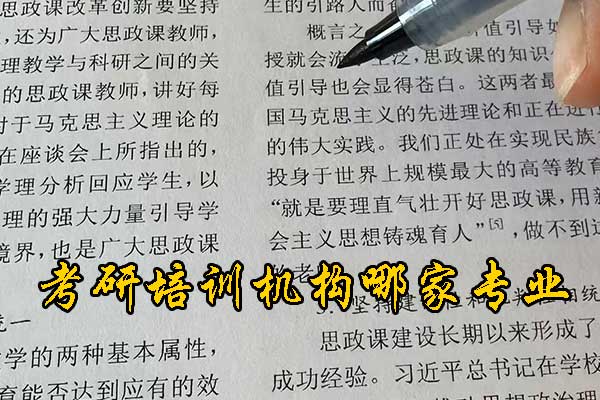 思政课改革创新要坚持
，还为广大思政课教师，
理教学与科研之间的关
的思政课教师，讲好每
对于马克思主义理论的
在座谈会上所指出的，
学理分析回应学生，以
理的强大力量引导学
境界，也是广大思政课
一
学的两种基本属性，
育能否达到应有的效
生的引路人而
概言之 值引导如
授就会流 泛，思政课的知识
值引导也会显得苍白。这两者最
国马克思主义的先进理论和正在进行
的伟大实践。我们正处在实现民族
投身于世界上规模最大的高等教育
“就是要理直气壮开好思政课，用新
会主义思想铸魂育人”[5]，做不到这
考研培训机构哪家专业
坚持建 性和 统
思政课建设长期以来形成了
成功经验。习近平总书记在学校
思想政治